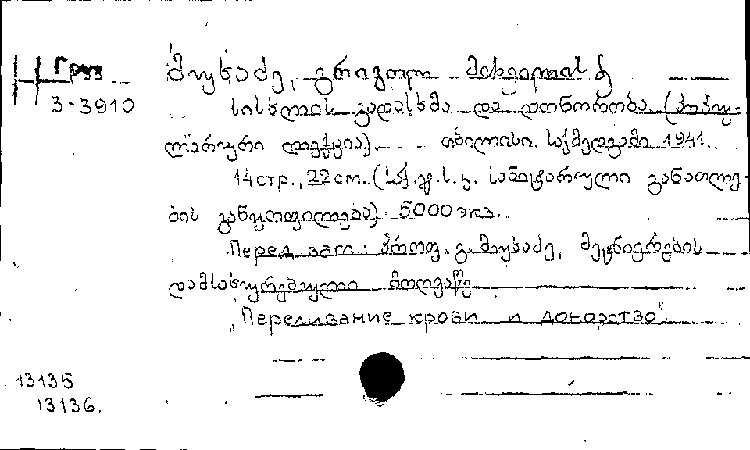 Груз
3-3910
მუხაძე, გრიგოლ მიხეილის ძ
სისხლის გადასხმა და დონორობა. (პოპუ-
ლარული ლექცია). თბილისი. საქმედგამი 1941.
14 стр., 22 cm. (საქ. სანიტარული განათლე-
ბის განყოფილება). 5000 экз.
Перед заг.: პროფ. გ. მუხაძე, მეცნიერების
დამსახურებული მოღვაწე
„Переливание крови и донорство"
13135
13136.